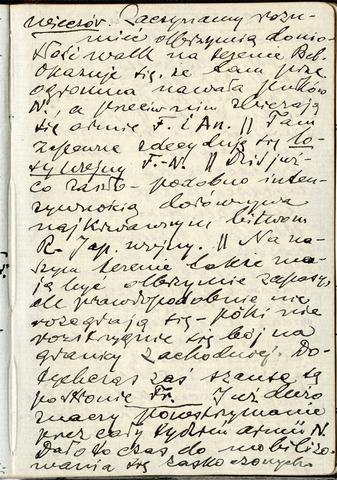 wieczór. Zaczynamy rozu-
mieć olbrzymią donio-
słość walk na terenie Bel.
Okazuje się, że tam prze
ogromna nawała pułków
N., a przeciw nim zbierają
się armie F. i An. || Tam
zapewne zdecydują się lo-
sy wojny F.-N. || Dziś już
co zaszło - podobno inten-
zywnością dorównywa
najkrwawszym bitwom
R. Jap. wojny. || Na na-
szym terenie także ma-
ją być olbrzymie zapasy,
ale prawdopodobnie nie
rozegrają się - póki nie
rozstrzygnie się bój na
granicy zachodniej. Do-
tychczas zaś szanse są
po stronie Fr. Już dużo
znaczy powstrzymanie
przez cały tydzień armii N.
Dało to czas do mobilizo-
wania się zaskoczonych